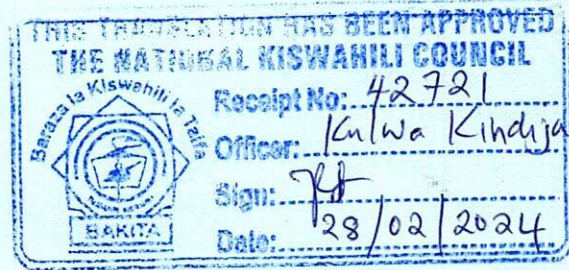 THIS TRANSLATION HAS BEEN APPROVED
THE NATIONAL KISWAHILI COUNCIL
Baraza la Kiswahili la Taifa
BAKITA
Receipt No: 42721
Officer: Kulwa Kindija
Sign:
Date: 28/02/2024